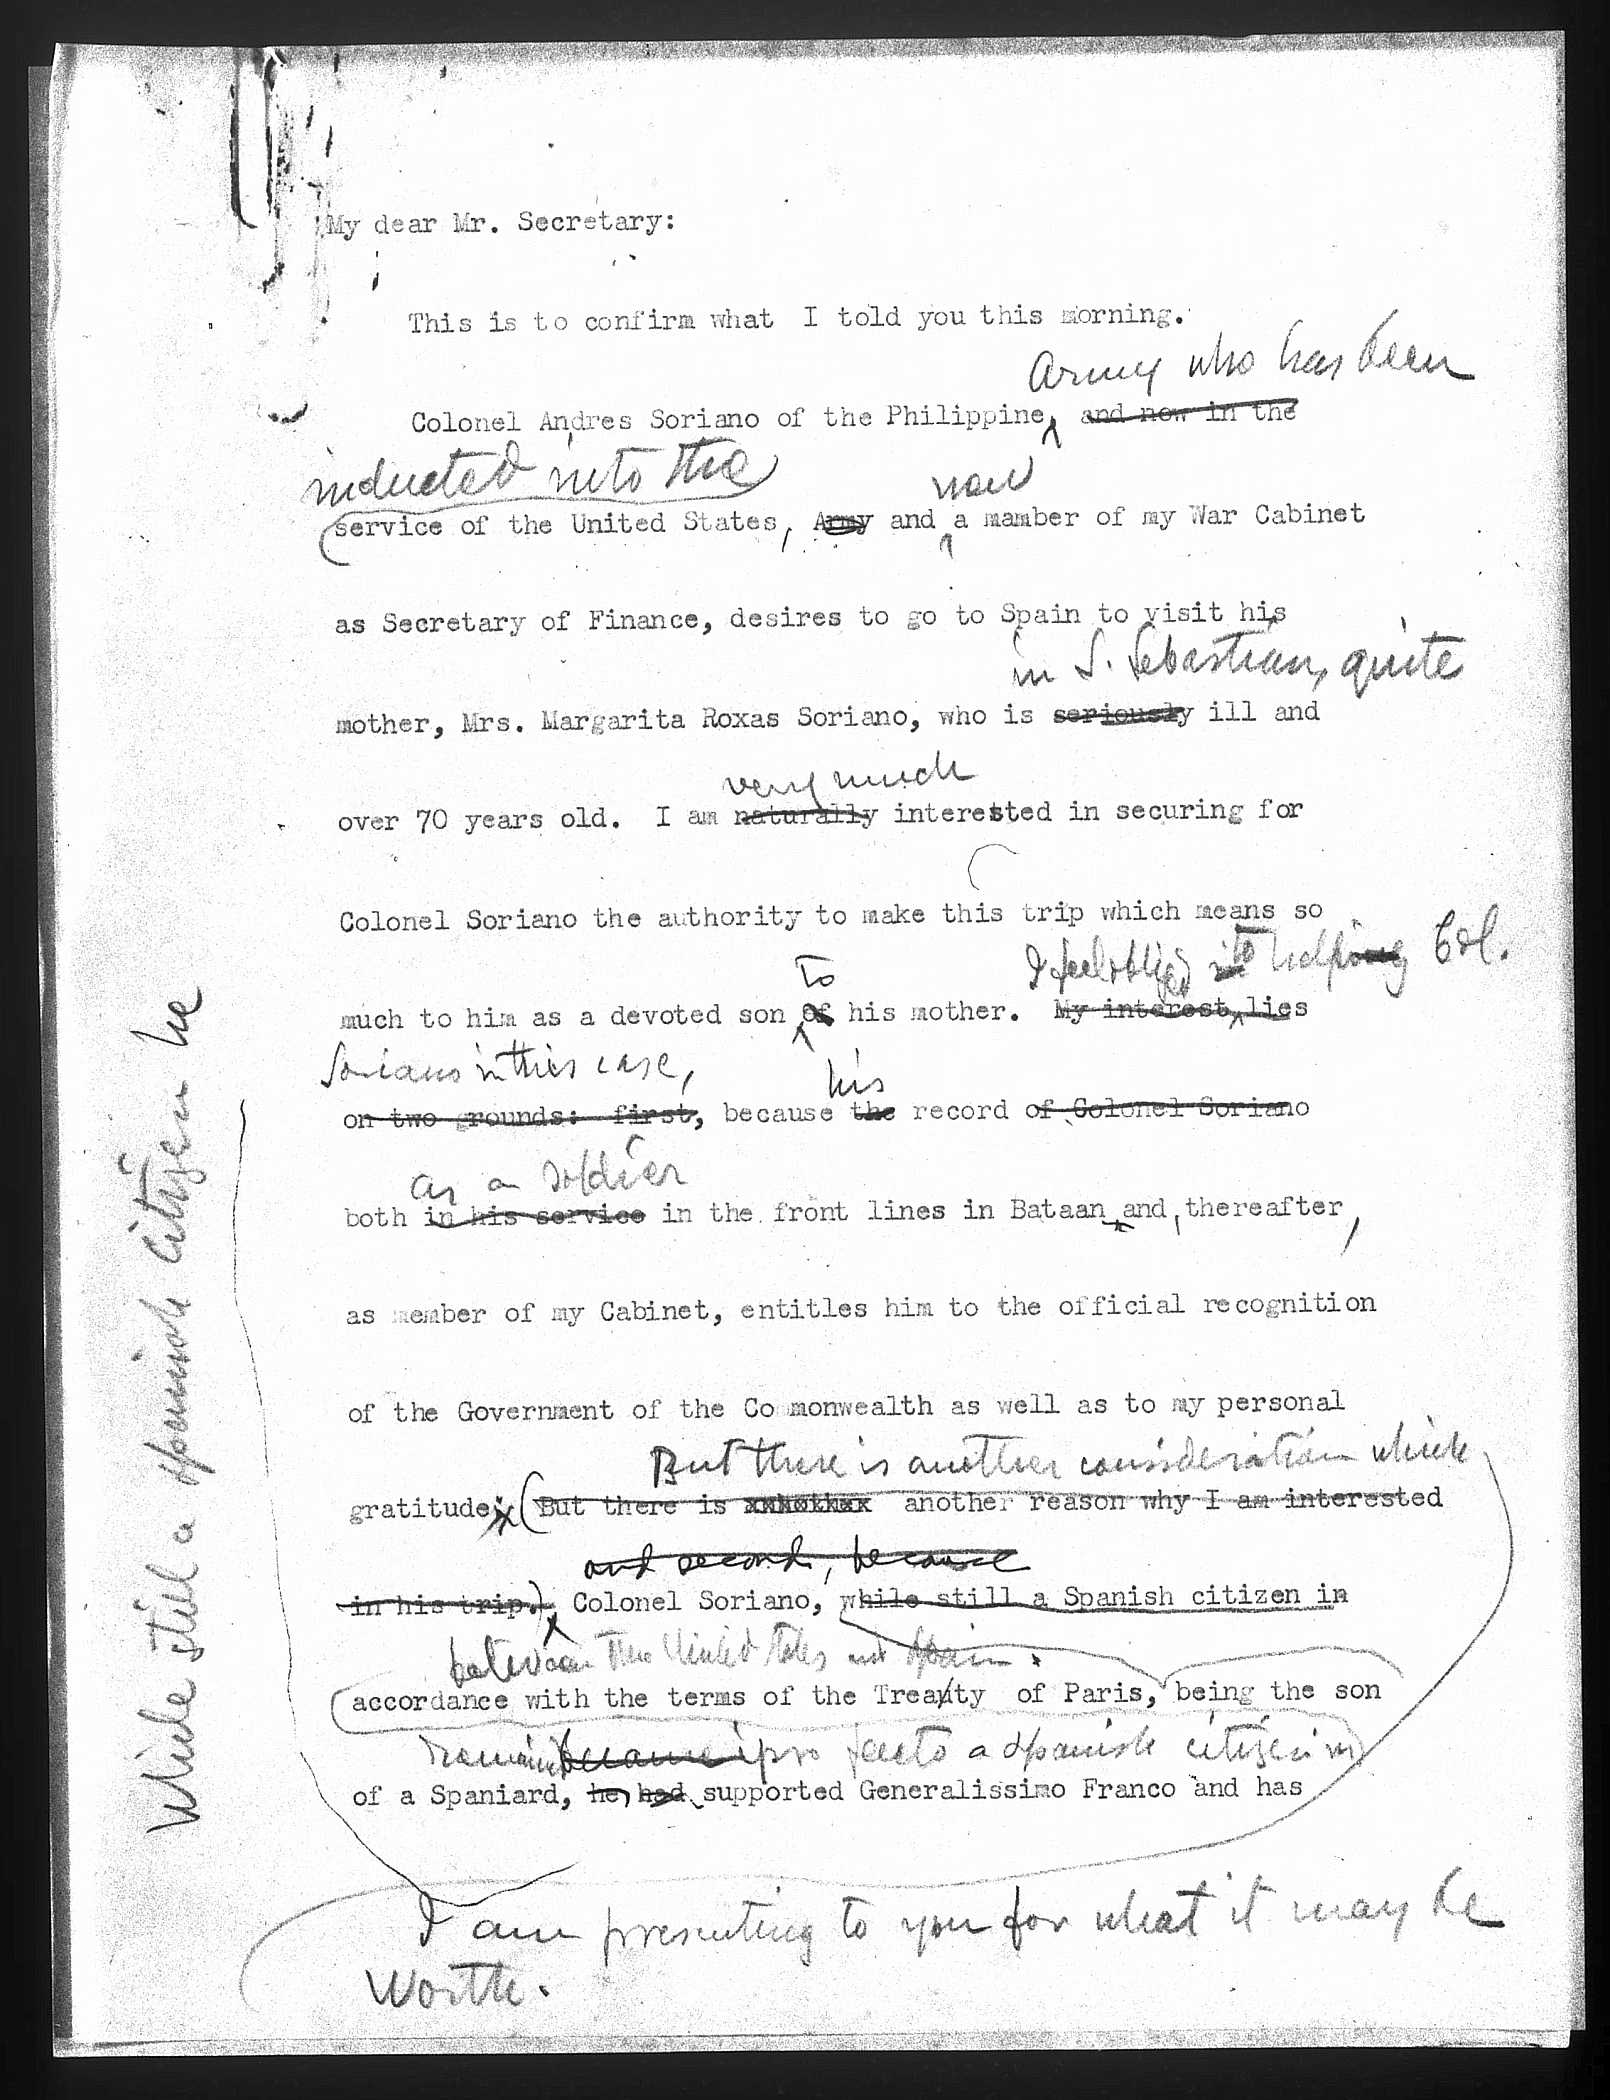 My dear Mr. Secretary:
This is to confirm what I told you this morning.
Army who has been
Colonel Andres Soriano of the Philippine, and now in the
inducted into the
now
service of the United States, Army and a mamber of my War Cabinet
as Secretary of Finance, desires to go to Spain to visit his
in S. Sebastian, quite
mother, Mrs. Margarita Roxas Soriano, who is seriously ill and
very much
over 70 years old. I am naturally interested in securing for
Colonel Soriano the authority to make this trip which means so
to
I feel obliged in to helping Col.
much to him as a devoted son of his mother. My interest lies
Soriano in this case,
his
on two grounds: first, because the record of Colonel Soriano
as a soldier
both in his service in the front lines in Bataan and, thereafter,
as member of my Cabinet, entitles him to the official recognition
of the Government of the Co monwealth as well as to my personal
But there is another consideration which
gratitude; (But there is another reason why I am interested
and second, because
in his trip.) Colonel Soriano, while still a Spanish citizen in
between the United States and Spain.
accordance with the terms of the Treaty of Paris, being the son
remained became ipso facto a Spanish citizen in
of a Spaniard, he, had supported Generalissimo Franco and has
I am presenting to you for what it may be
worth.
While still a Spanish Citizen he